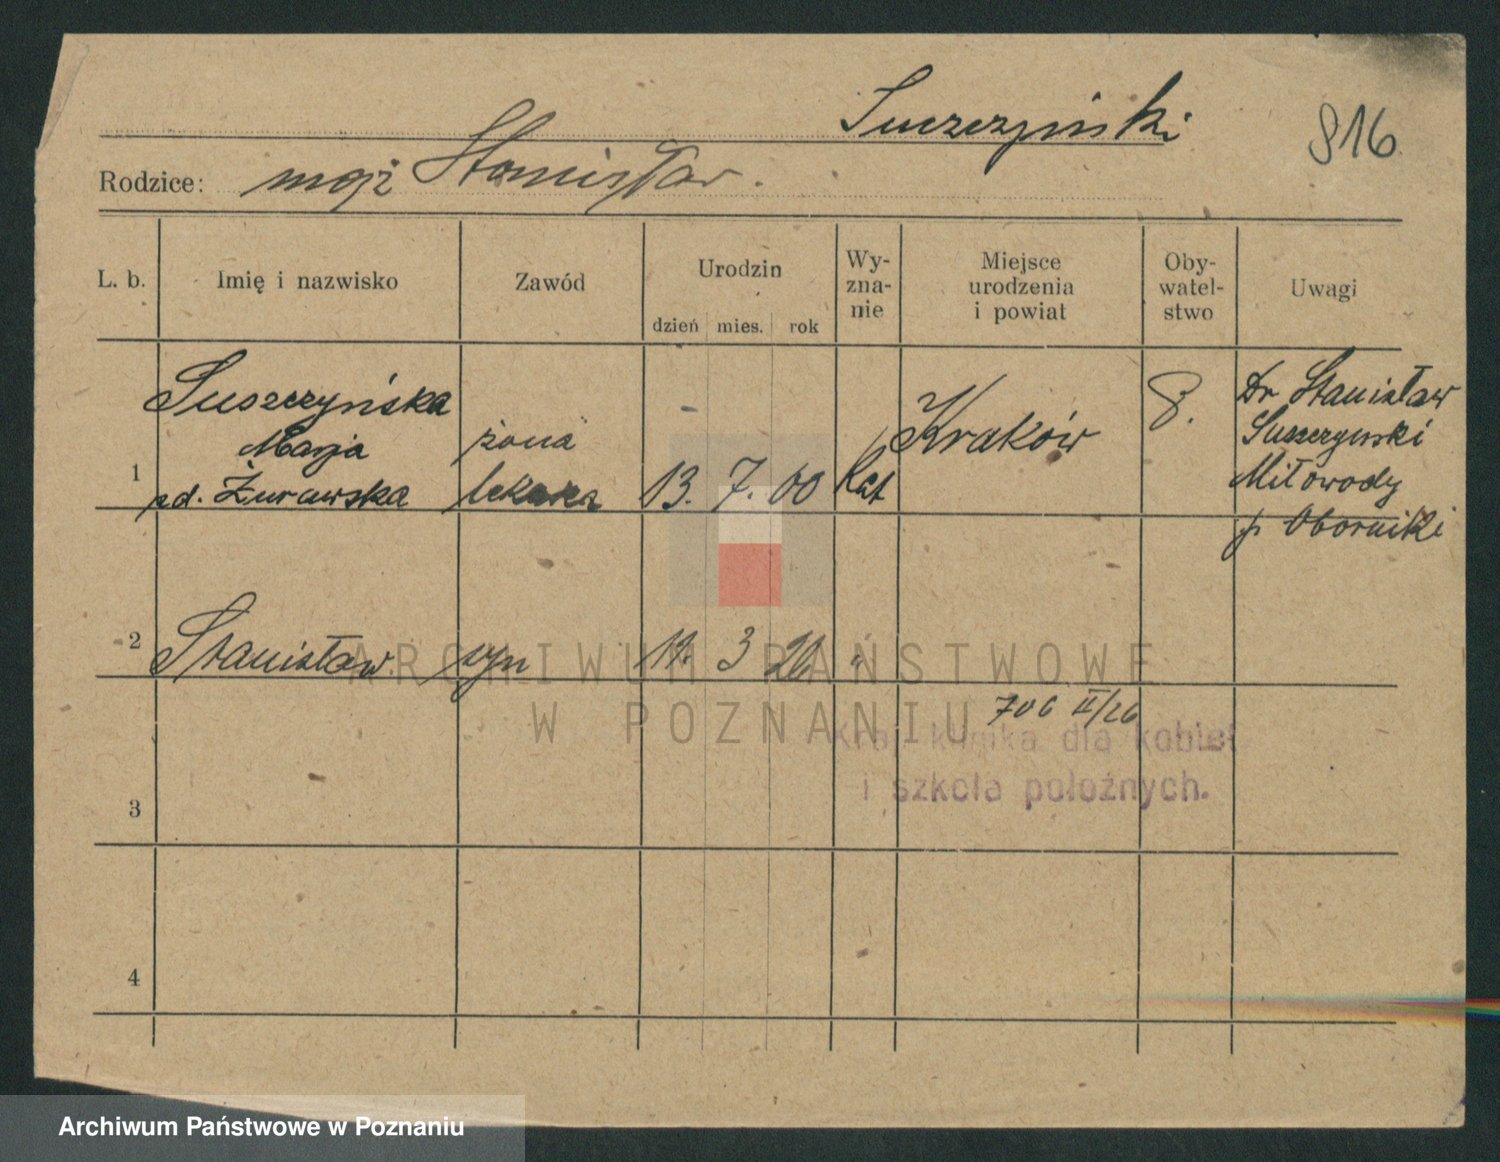 Suszczyński
816
Rodzice: mąż Stanisław.
L. b. Imię i nazwisko Zawód Urodzin dzień mies. rok Wy-zna-nie Miejsce urodzenia i powiat Oby-watel-stwo Uwagi
Suszczyńska
Marja
zd. Żurawska
1
żona
lekarza
13. 7. 00
Kat
Kraków
Dr Stanisław
Suszczyński
Miłowody
p. Oborniki
2 Stanisław syn 19. 3 26 "
706 II/26
Kraj. klinika dla kobiet
i szkoła położnych.
3
4
ARCHIWUM PAŃSTWOWE
W POZNANIU
Archiwum Państwowe w Poznaniu